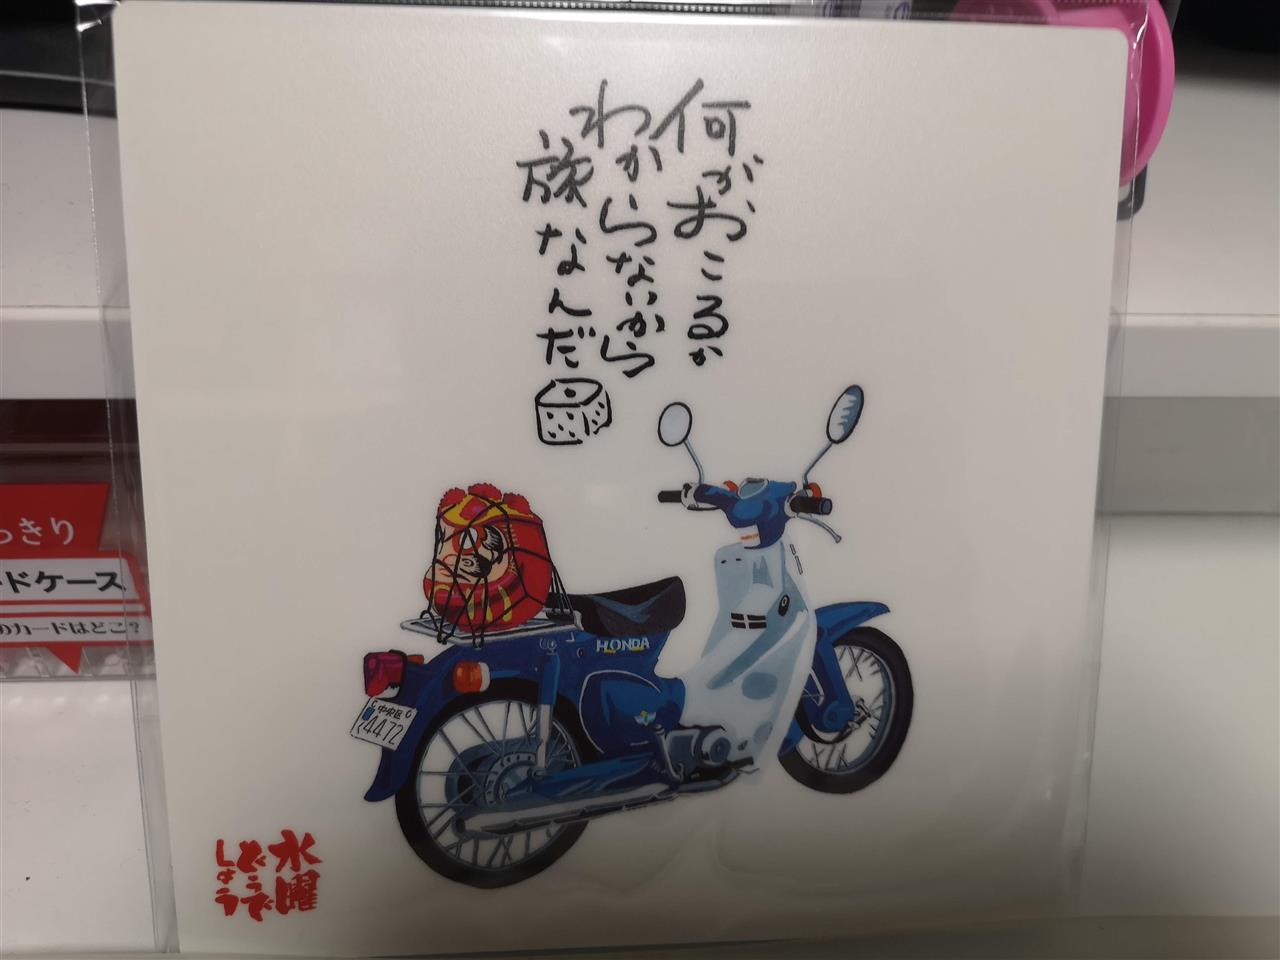 何がおこるか
わからないから
旅なんだ
HONDA
中央区
く4472
水曜
どうで
しょう
っきり
ードケース
のカードはどこ?